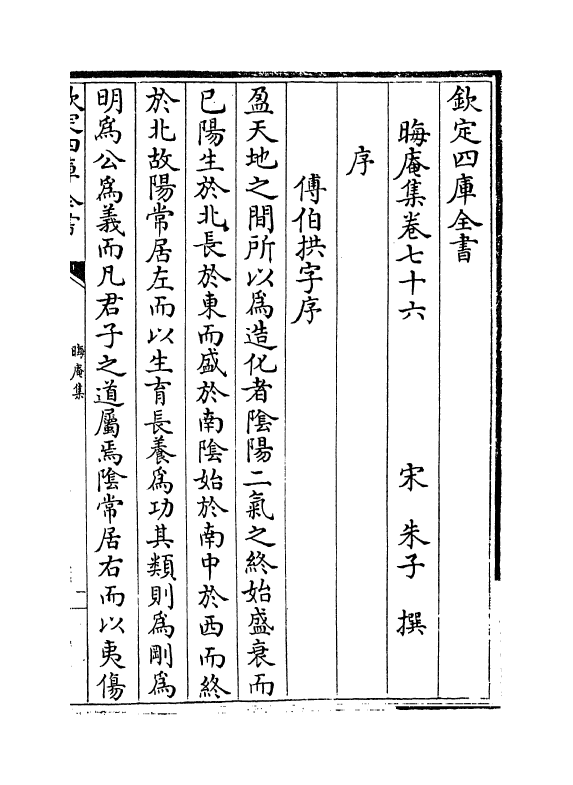 欽定四庫全書
晦庵集卷七十六
宋 朱子 撰
序
傅伯拱字序
盈天地之間所以為造化者陰陽二氣之終始盛衰而
已陽生於北長於東而盛於南陰始於南中於西而終
於北故陽常居左而以生育長養為功其類則為剛為
明為公為義而凡君子之道屬焉陰常居右而以夷傷
晦庵集